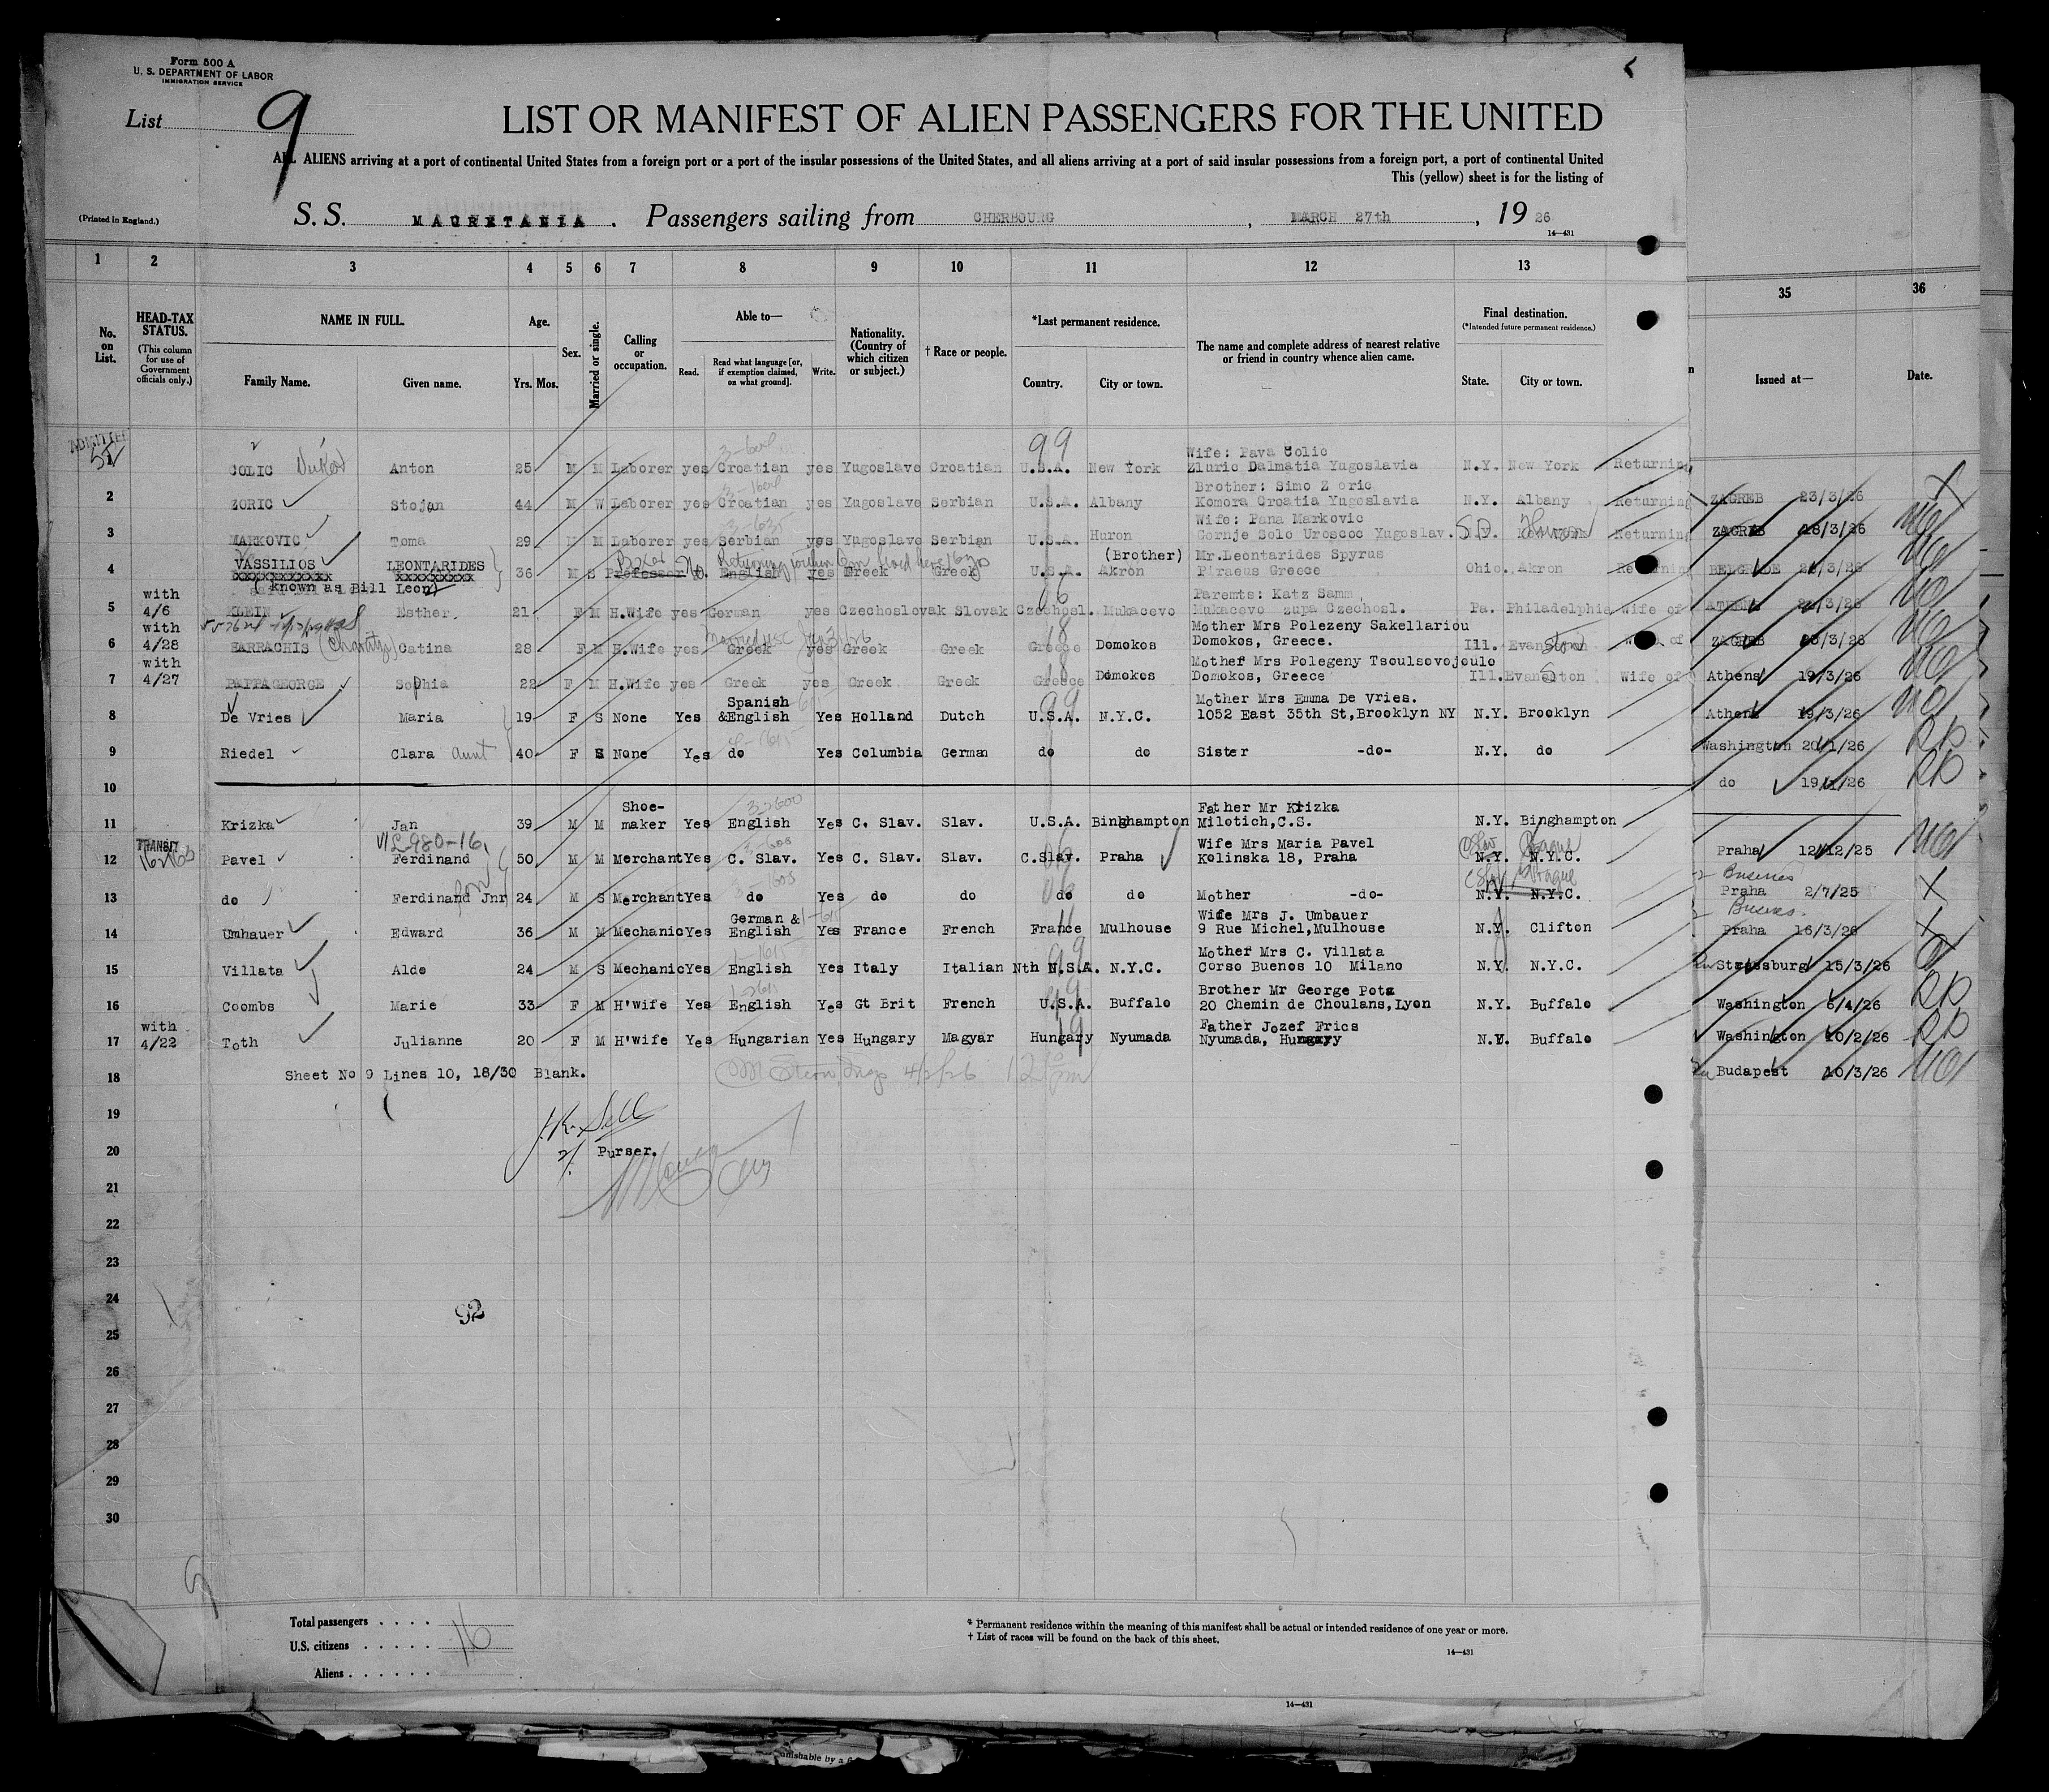 Form 500 A
U. S. DEPARTMENT OF LABOR
IMMIGRATION SERVICE
List 9
LIST OR MANIFEST OF ALIEN PASSENGERS FOR THE UNITED
ALL ALIENS arriving at a port of continental United States from a foreign port or a port of the insular possessions of the United States, and all aliens arriving at a port of said insular possessions from a foreign port, a port of continental United
This (yellow) sheet is for the listing of
(Printed in England.)
S. S. MAURETANIA. Passengers sailing from CHERBOURG, MARCH 27th, 19 26
14—431
1 2 3 4 5 6 7 8 9 10 11 12 13 35 36
No. on List.
HEAD-TAX STATUS. (This column for use of Government officials only.)
NAME IN FULL.
Family Name. Given name.
Age.
Yrs. Mos.
Sex.
Married or single.
Calling or occupation.
Able to—
Read. Read what language [or, if exemption claimed, on what ground]. Write.
Nationality. (Country of which citizen or subject.)
† Race or people.
*Last permanent residence.
Country. City or town.
The name and complete address of nearest relative or friend in country whence alien came.
Final destination.
(*Intended future permanent residence.)
State. City or town.
Issued at— Date.
ADMITTED
99 Wife: Pava Colic
COLIC Anton 25 M M Laborer yes Croatian yes Yugoslave Croatian U.S.A. New York Zluric Dalmatia Yugoslavia N.Y. New York Returning
Brother: Simo Z oric
2 ZORIC Stojan 44 M W Laborer yes Croatian yes Yugoslave Serbian U.S.A. Albany Komora Croatia Yugoslavia N.Y. Albany Returning ZAGREB 23/3/26 X
Wife: Pana Markovic
3 MARKOVIC Toma 29 M M Laborer yes Serbian yes Yugoslave Serbian U.S.A. Huron Gornje Solo Uroscoc Yugoslav. S.D. Huron Returning ZAGREB 18/3/26
VASSILIOS LEONTARIDES Boxer No (Brother) Mr.Leontarides Spyrus
4 XXXXXXXXXXXX XXXXXXXXX 36 M S Professor English yes Greek Greek U.S.A. Akron Piraeus Greece Ohio. Akron Returning BELGRADE
( known as Bill Leon)
with Parents: Katz Samm,
5 4/6 KLEIN Esther. 21 F M H.Wife yes German yes Czechoslovak Slovak Czechosl. Mukacevo Mukacevo zupa Czechosl. Pa. Philadelphia Wife of ATHENS
with Mother Mrs Polezeny Sakellariou
6 4/28 Catina 28 F M H.Wife yes Greek yes Greek Greek Greece Domokos Domokos, Greece. Ill. Evanston Wife of ZAGREB 23/3/26
with Mother Mrs Polegeny Tsoulsovojoulo
7 4/27 PAPPAGEORGE Sophia 22 F M H.Wife yes Greek yes Greek Greek Greece Domokos Domokos, Greece Ill. Evanston Wife of Athens 19/3/26
Spanish 99 Mother Mrs Emma De Vries.
8 De Vries Maria 19 F S None Yes &English Yes Holland Dutch U.S.A. N.Y.C. 1052 East 35th St,Brooklyn NY N.Y. Brooklyn Athens 19/3/26
9 Riedel Clara aunt 40 F S None Yes do Yes Columbia German do do Sister -do- N.Y. do Washington 20/1/26
10 do 19/1/26
Shoe- Father Mr Krizka
11 Krizka Jan 39 M M maker Yes English Yes C. Slav. Slav. U.S.A. Binghampton Milotich,C.S. N.Y. Binghampton
TRANSIT Wife Mrs Maria Pavel
12 Pavel Ferdinand 50 M M Merchant Yes C. Slav. Yes C. Slav. Slav. C.Slav. Praha Kolinska 18, Praha N.Y. N.Y.C. Praha 12/12/25
13 do Ferdinand Jnr 24 M S Merchant Yes do Yes do do do do Mother -do- N.Y. N.Y.C. Praha 2/7/25 X
German & Wife Mrs J. Umbauer
14 Umhauer Edward 36 M M Mechanic Yes English Yes France French France Mulhouse 9 Rue Michel,Mulhouse N.Y. Clifton Praha 16/3/26 X
Mother Mrs C. Villata
15 Villata Aldo 24 M S Mechanic Yes English Yes Italy Italian Nth N.S.A. N.Y.C. Corso Buenos 10 Milano N.Y. N.Y.C. Strassburg 15/3/26
Brother Mr George Pota
16 Coombs Marie 33 F M H'wife Yes English Yes Gt Brit French U.S.A. Buffalo 20 Chemin de Choulans,Lyon N.Y. Buffalo Washington 6/4/26
with Father Jozef Frics
17 4/22 Toth Julianne 20 F M H'wife Yes Hungarian Yes Hungary Magyar Hungary Nyumada Nyumada, Hungary N.Y. Buffalo Washington 10/2/26
18 Sheet No 9 Lines 10, 18/30 Blank. Budapest 10/3/26
19
20 Purser.
21
22
23
24
92
25
26
27
28
29
30
Total passengers . . . .
U.S. citizens . . . . . 16
Aliens . . . . . .
* Permanent residence within the meaning of this manifest shall be actual or intended residence of one year or more.
† List of races will be found on the back of this sheet.
14—431
14—431